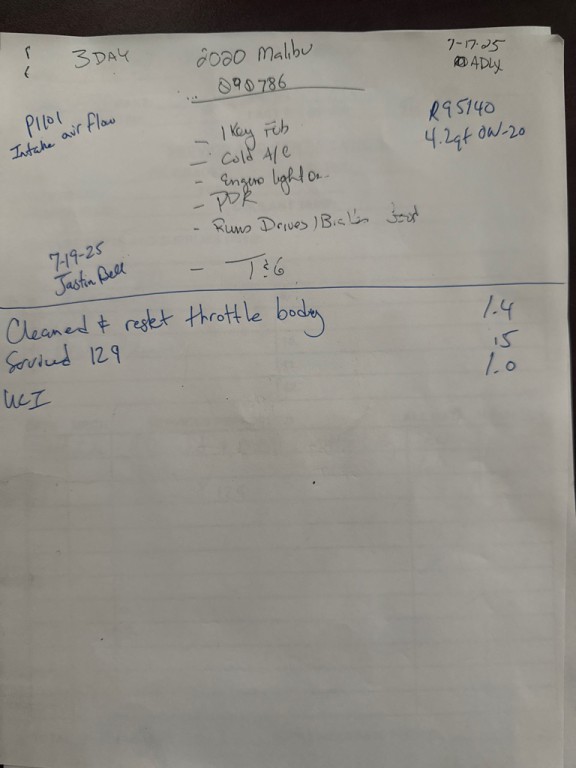 3 DAY
2020 Malibu
7-17-25
ADLX
090786
P1101
Intake air flow
R95140
4.2qt 0W-20
- 1 Key Fob
- Cold A/C
- light on
- PDR
- Runs Drives
7-19-25
Justin Bell
- T & G
Cleaned & reset throttle body 1.4
Serviced 129 .5
UCI 1.0